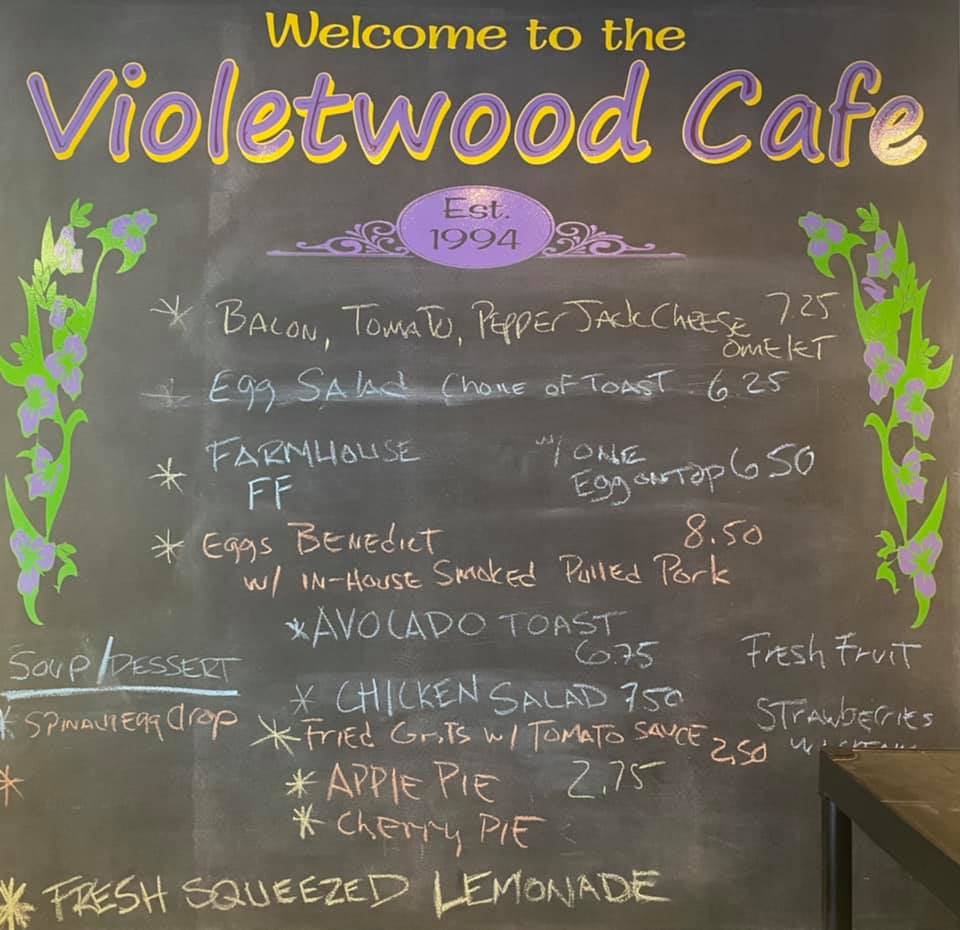 Welcome to the
Violetwood Cafe
Est.
1994
* BACON, TOMATO, PEPPER JACK CHEESE 7.25
OMELET
* Egg SALAD CHOICE OF TOAST 6.25
* FARMHOUSE w/ ONE
FF Egg ON TOP 6 50
* Eggs BENEDICT 8.50
w/ IN-HOUSE SMOKED PULLED PORK
* AVOCADO TOAST
6.75
Fresh Fruit
SOUP/DESSERT
* CHICKEN SALAD 7 50
STRAWBERRIES
* egg drop
* FRIED GRITS w/ TOMATO SAUCE 2,50
* APPLE PIE 2.75
*
* CHERRY PIE
* FRESH SQUEEZED LEMONADE